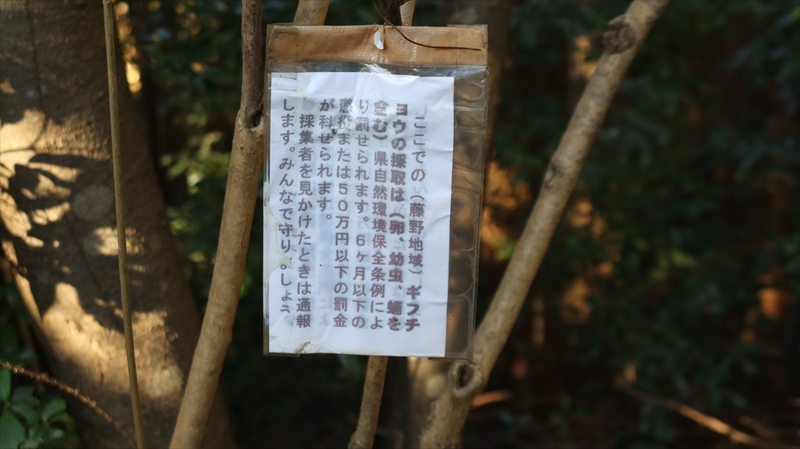 ここでの（藤野地域）ギフチ
ョウの採取は（卵、幼虫、蛹を
含む）県自然環境保全条例によ
り罰せられます。6ヶ月以下の
懲役または50万円以下の罰金
が科せられます。
採集者を見かけたときは通報
します。みんなで守りましょう